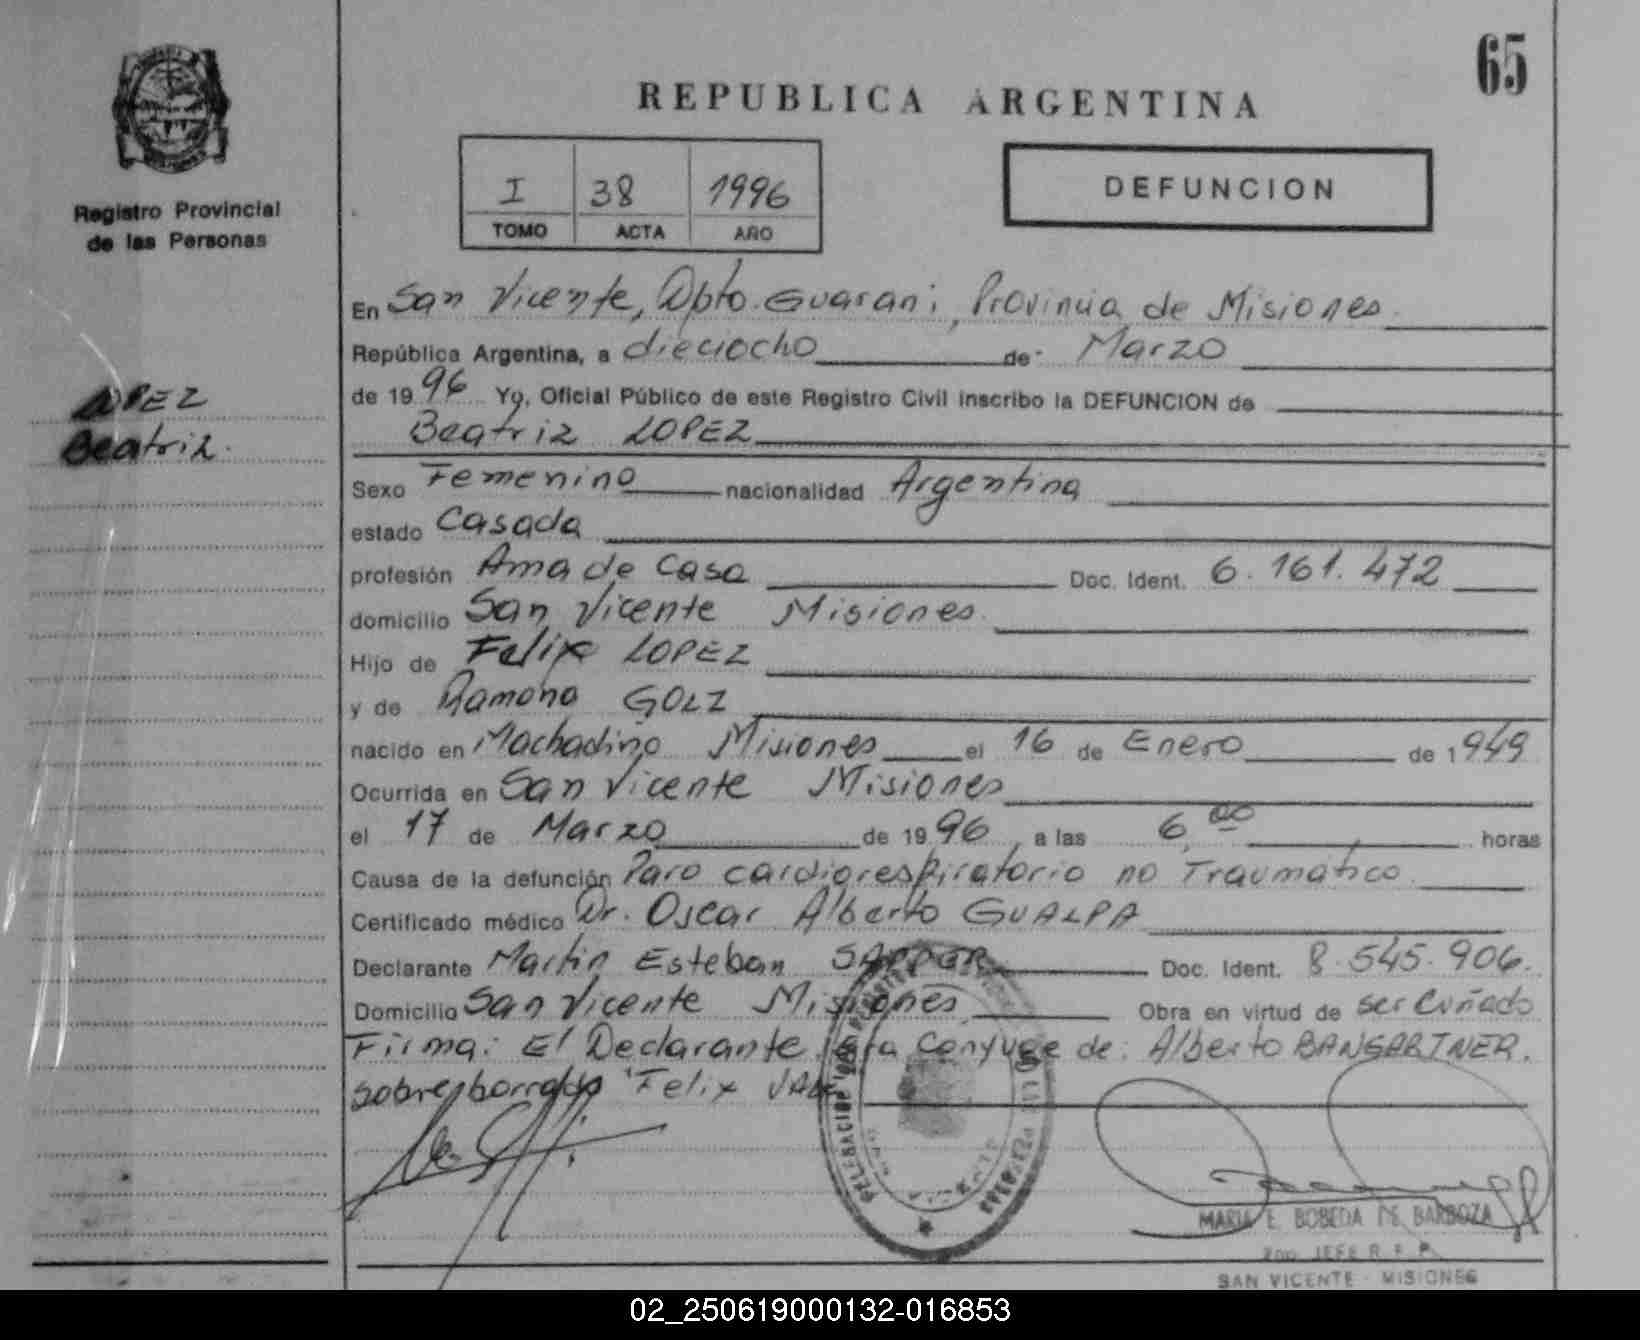 65
REPUBLICA ARGENTINA
Registro Provincial
de las Personas
I 38 1996
TOMO ACTA AÑO
DEFUNCION
LOPEZ
Beatriz.
En San Vicente, Dpto. Guarani, Provincia de Misiones
República Argentina, a dieciocho de Marzo
de 1996 Yo, Oficial Público de este Registro Civil inscribo la DEFUNCION de
Beatriz LOPEZ
Sexo Femenino nacionalidad Argentina
estado Casada
profesión Ama de Casa Doc. Ident. 6.161.472
domicilio San Vicente Misiones.
Hijo de Felix LOPEZ
y de Ramona GOLZ
nacido en Machadiño Misiones el 16 de Enero de 1949
Ocurrida en San Vicente Misiones
el 17 de Marzo de 1996, a las 6,00 horas
Causa de la defunción Paro cardiorespiratorio no Traumático.
Certificado médico Dr. Oscar Alberto GUALPA
Declarante Martin Esteban Doc. Ident. 8.545.906.
Domicilio San Vicente Misiones Obra en virtud de ser Cuñado
Firma: El Declarante. Era Conyuge de: Alberto BANGARTNER.
sobreborrado "Felix
MARIA E. BOBEDA DE BARBOZA
2do. JEFE R. P. P.
SAN VICENTE - MISIONES
02_250619000132-016853